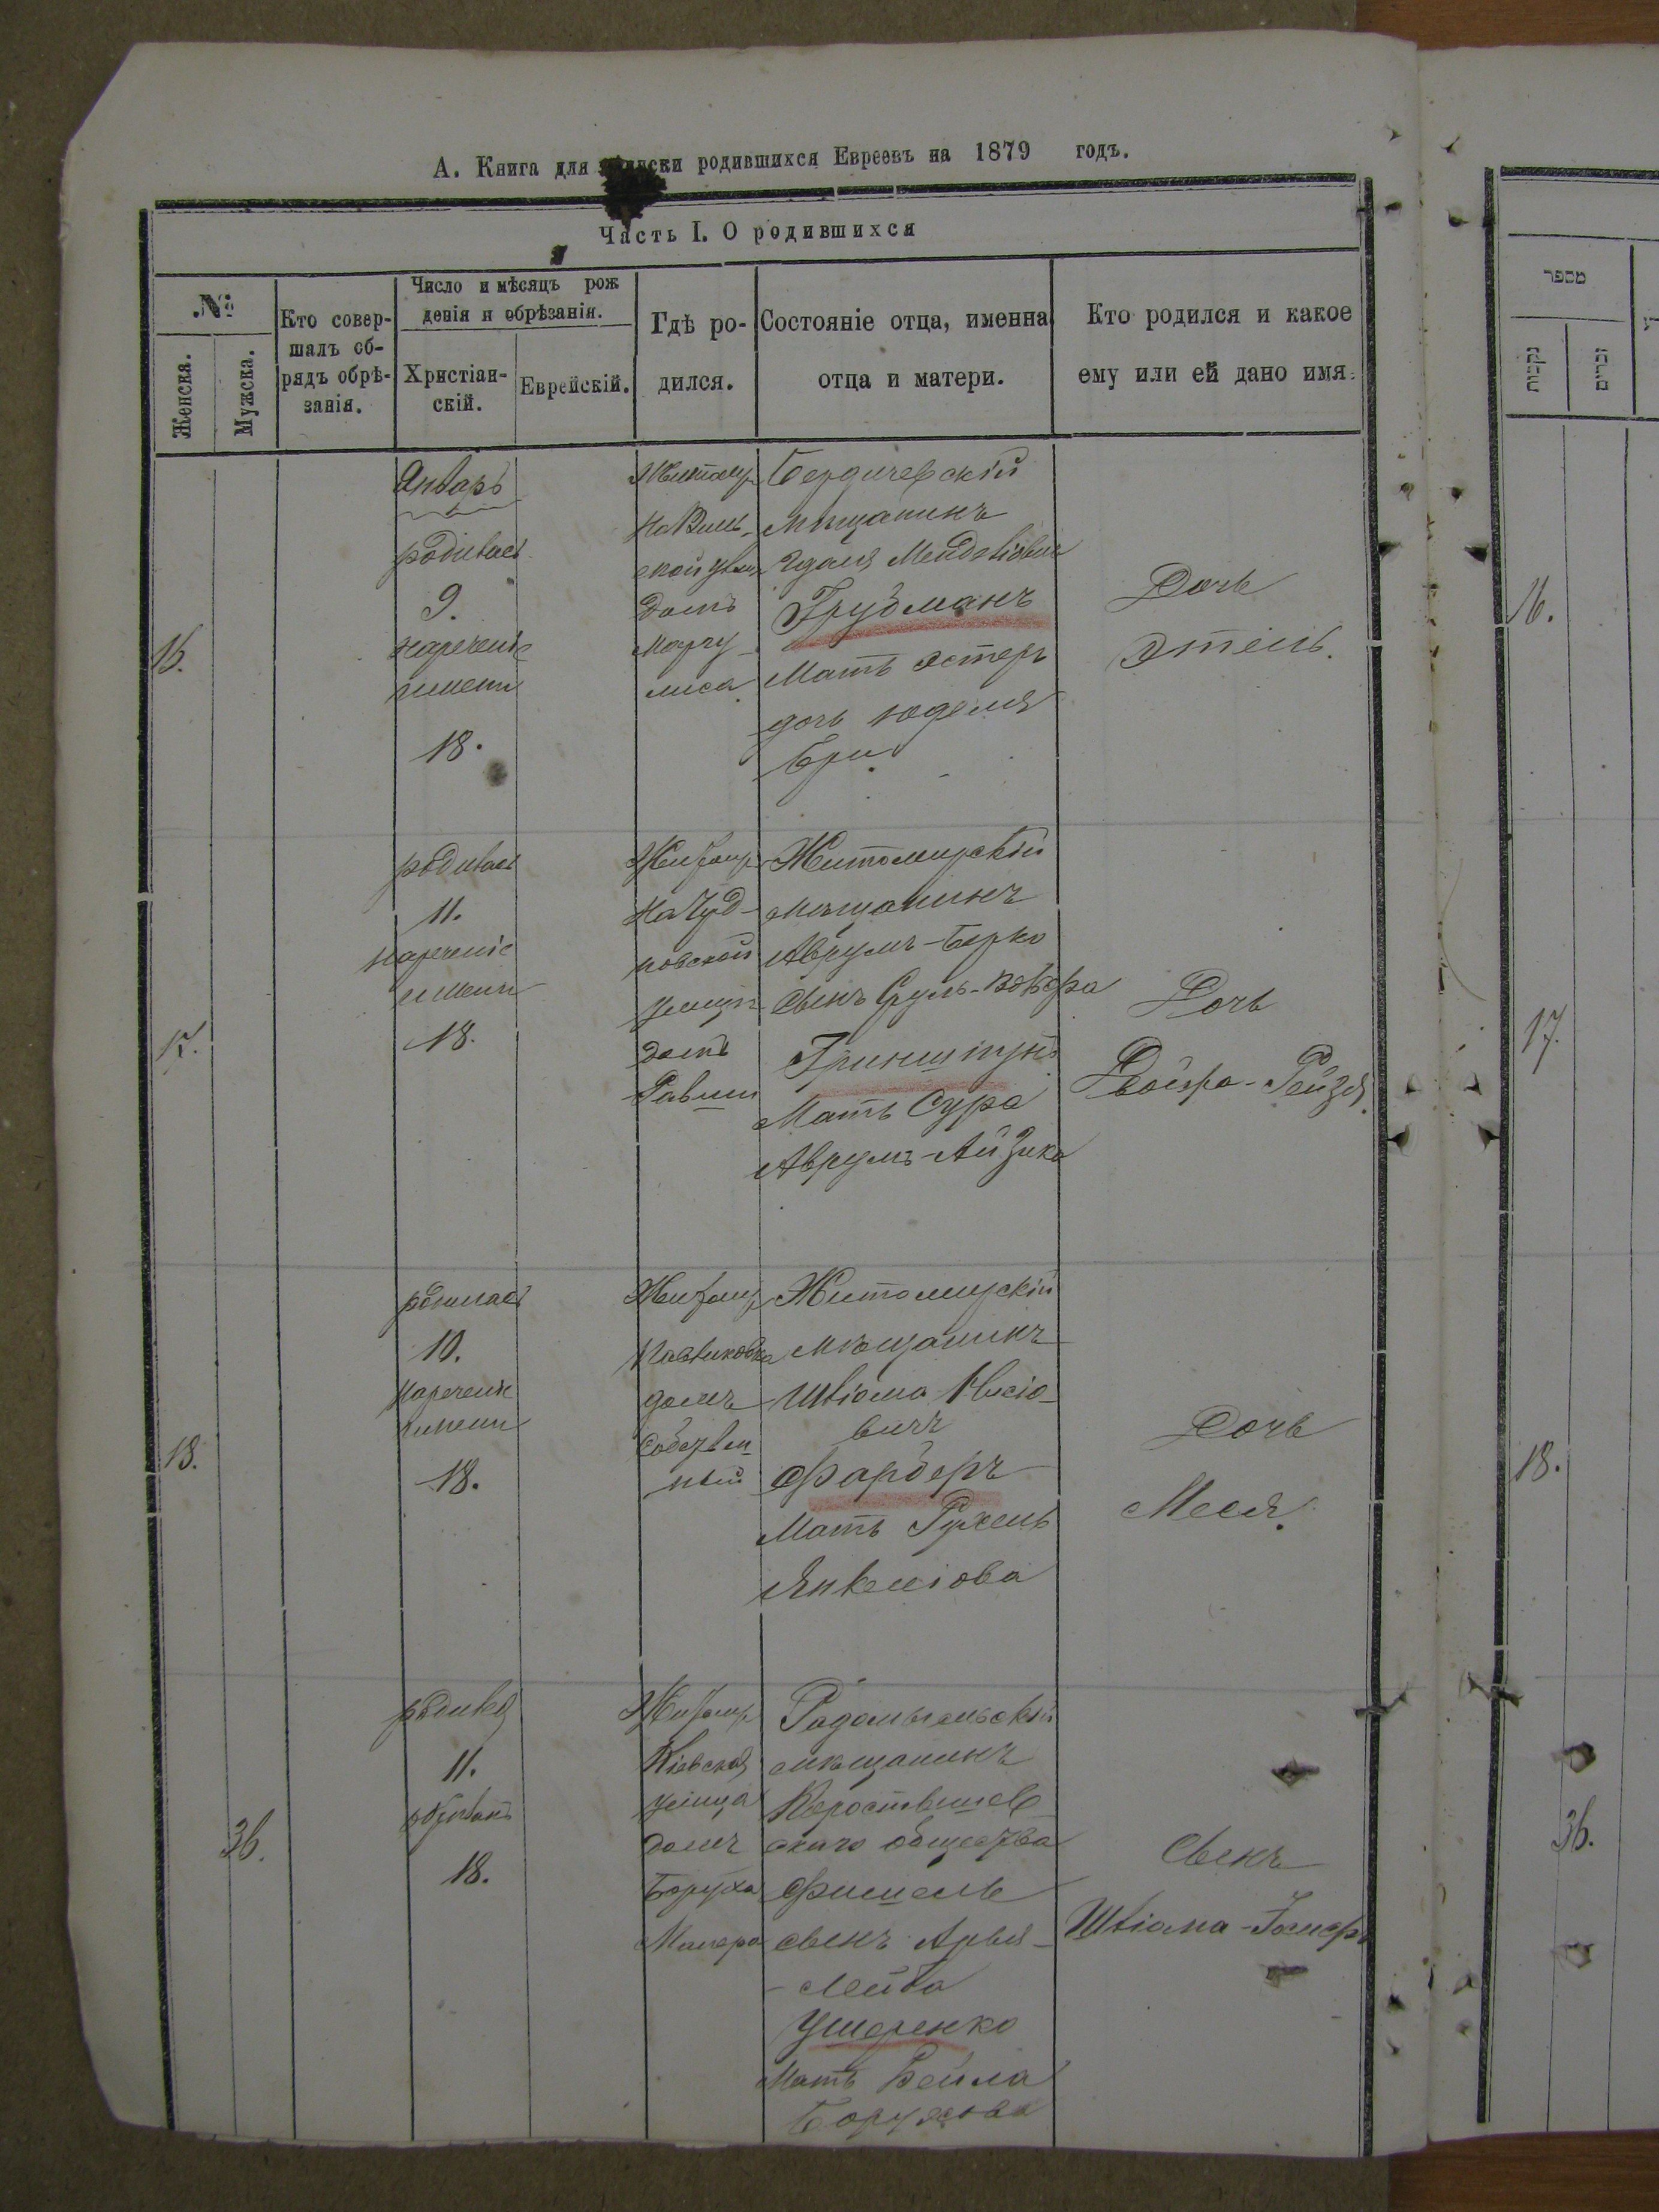 А. Книга для записки родившихся Евреевъ на 1879 годъ.
Часть I. О родившихся
№
Женска.
Мужска.
Кто совер-
шалъ об-
рядъ обрѣ-
занія.
Число и мѣсяцъ рож
денія и обрѣзанія.
Христіан-
скій.
Еврейскій.
Гдѣ ро-
дился.
Состояніе отца, именна
отца и матери.
Кто родился и какое
ему или ей дано имя.
16.
Январь
родилась
9.
нареченіе
имени
18.
Житомир
домъ
Маргу-
лиса
Бердичевскій
мѣщанинъ
Грубманъ
Мать Эстеръ
дочь Юделя
Дочь
Этель.
17.
родилась
11.
нареченіе
имени
18.
Житомир
на Чуд-
новской
улицѣ
домъ
Житомирскій
мѣщанинъ
Аврумъ-Берко
сынъ
Мать Сура
Аврумъ-Айзика
Дочь
Двойра-Рейзя.
18.
родилась
10.
нареченіе
имени
18.
Житомир
Павликовка
домъ
собствен
ный
Житомирскій
мѣщанинъ
Шліома
вичъ
Фарберъ
Мать Рухель
Янкеліова
Дочь
Меся.
36.
родился
11.
обрѣзанъ
18.
Житомир
Кіевская
улица
домъ
Боруха
Радомысльскій
мѣщанинъ
Коростышев
скаго общества
Фишель
сынъ Арья-
-Лейба
Ушеренко
Мать Бейла
Борухова
Сынъ
מספר
נקבות
זכרים
16.
17.
18.
36.